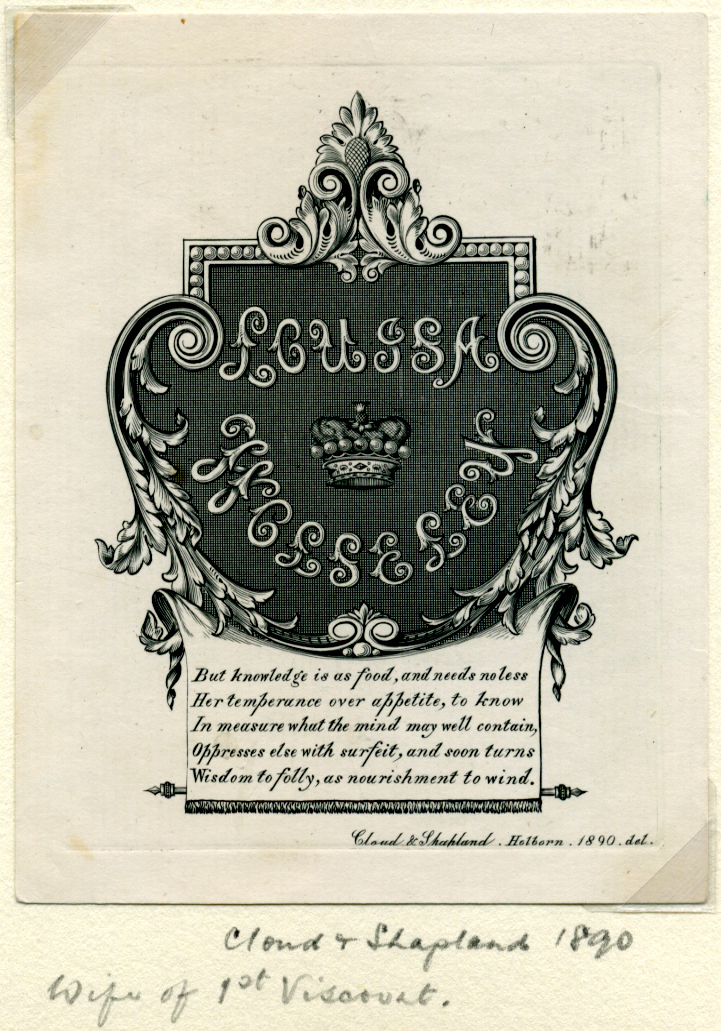 LOUISA
WOLSELEY
But knowledge is as food, and needs no less
Her temperance over appetite, to know
In measure what the mind may well contain,
Oppresses else with surfeit, and soon turns
Wisdom to folly, as nourishment to wind.
Cloud & Shapland . Holborn . 1890 . del.
Cloud & Shapland 1890
Wife of 1st Viscount.